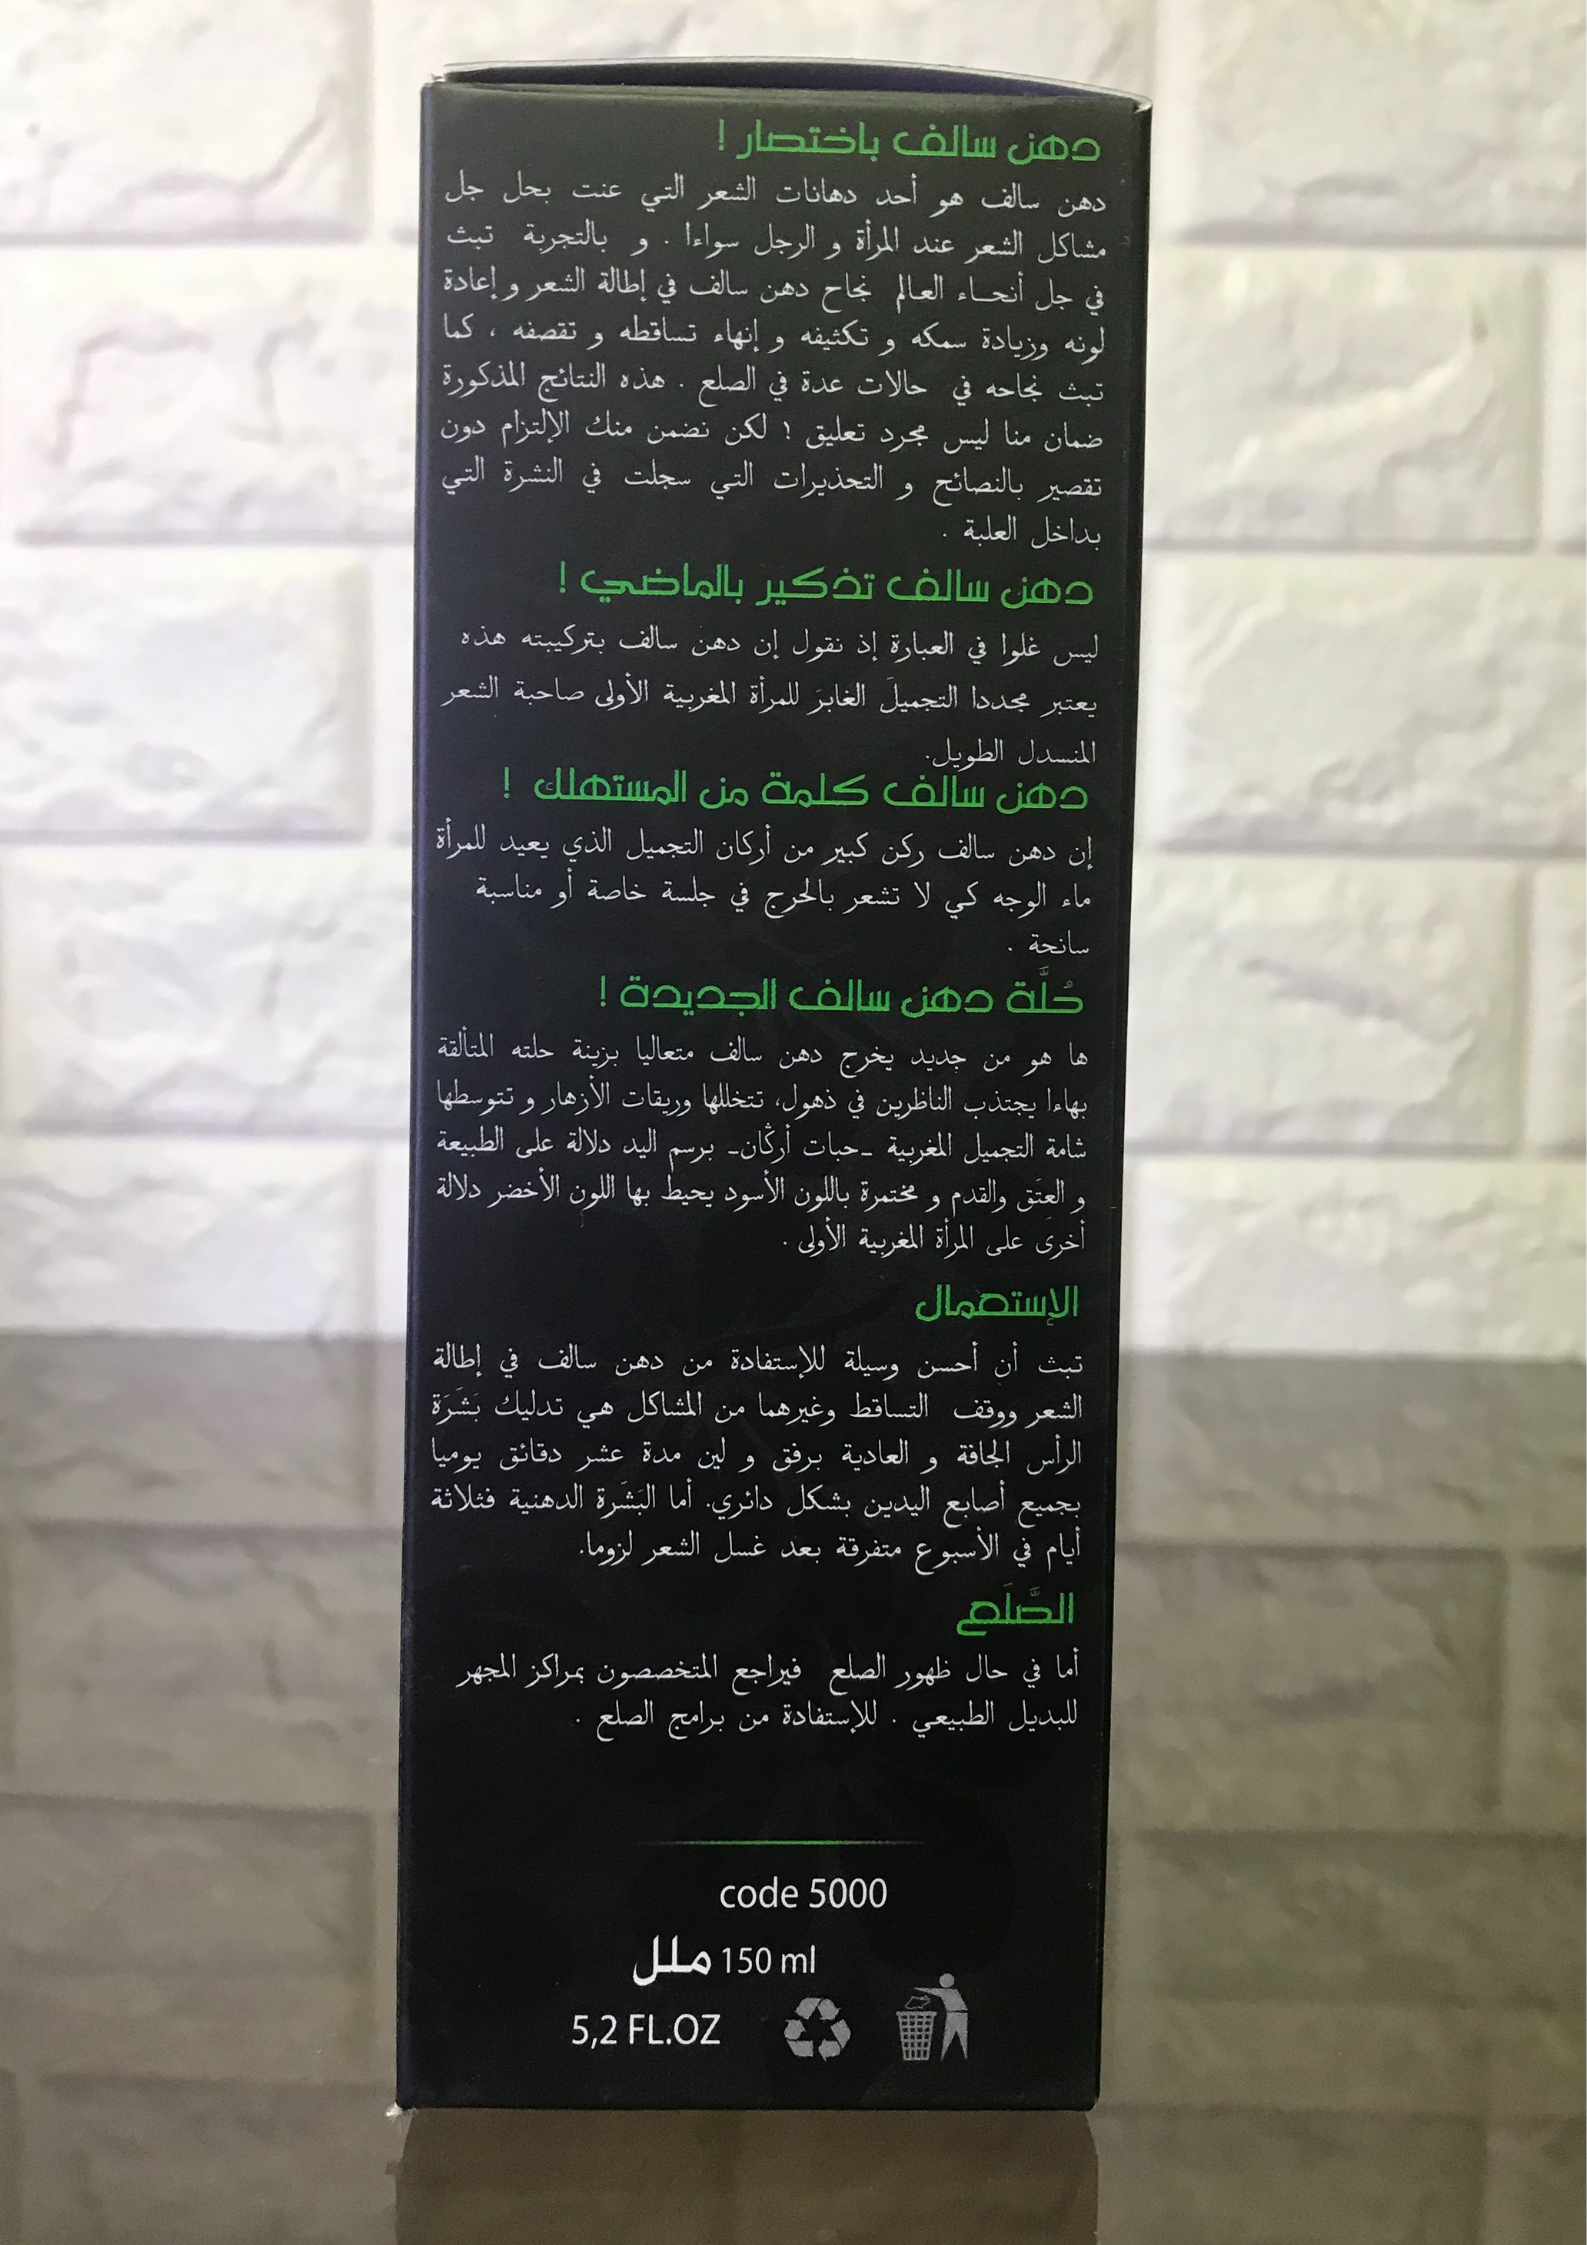 دهن سالف باختصار !
دهن سالف هو أحد دهانات الشعر التي عنت بحل جل
مشاكل الشعر عند المرأة و الرجل سواءا . و بالتجربة تبث
في جل أنحاء العالم نجاح دهن سالف في إطالة الشعر و إعادة
لونه وزيادة سمكه و تكثيفه و إنهاء تساقطه و تقصفه ، كما
تبث نجاحه في حالات عدة في الصلع . هذه النتائج المذكورة
ضمان منا ليس مجرد تعليق ! لكن نضمن منك الإلتزام دون
تقصير بالنصائح و التحذيرات التي سجلت في النشرة التي
بداخل العلبة .
دهن سالف تذكير بالماضي !
ليس غلوا في العبارة إذ نقول إن دهن سالف بتركيبته هذه
يعتبر مجددا التجميلَ الغابرَ للمرأة المغربية الأولى صاحبة الشعر
المنسدل الطويل.
دهن سالف كلمة من المستهلك !
إن دهن سالف ركن كبير من أركان التجميل الذي يعيد للمرأة
ماء الوجه كي لا تشعر بالحرج في جلسة خاصة أو مناسبة
سانحة .
حُلَّة دهن سالف الجديدة !
ها هو من جديد يخرج دهن سالف متعاليا بزينة حلته المتألقة
بهاءا يجتذب الناظرين في ذهول، تتخللها وريقات الأزهار و تتوسطها
شامة التجميل المغربية -حبات أركَان- برسم اليد دلالة على الطبيعة
و العِتَق والقدم و مختمرة باللون الأسود يحيط بها اللون الأخضر دلالة
أخرى على المرأة المغربية الأولى .
الإستعمال
تبث أن أحسن وسيلة للإستفادة من دهن سالف في إطالة
الشعر ووقف التساقط وغيرهما من المشاكل هي تدليك بَشَرَة
الرأس الجافة و العادية برفق و لين مدة عشر دقائق يوميا
بجميع أصابع اليدين بشكل دائري. أما البَشَرة الدهنية فثلاثة
أيام في الأسبوع متفرقة بعد غسل الشعر لزوما.
الصَّلَع
أما في حال ظهور الصلع فيراجع المتخصصون بمراكز المجهر
للبديل الطبيعي . للإستفادة من برامج الصلع .
code 5000
150 ml ملل
5,2 FL.OZ